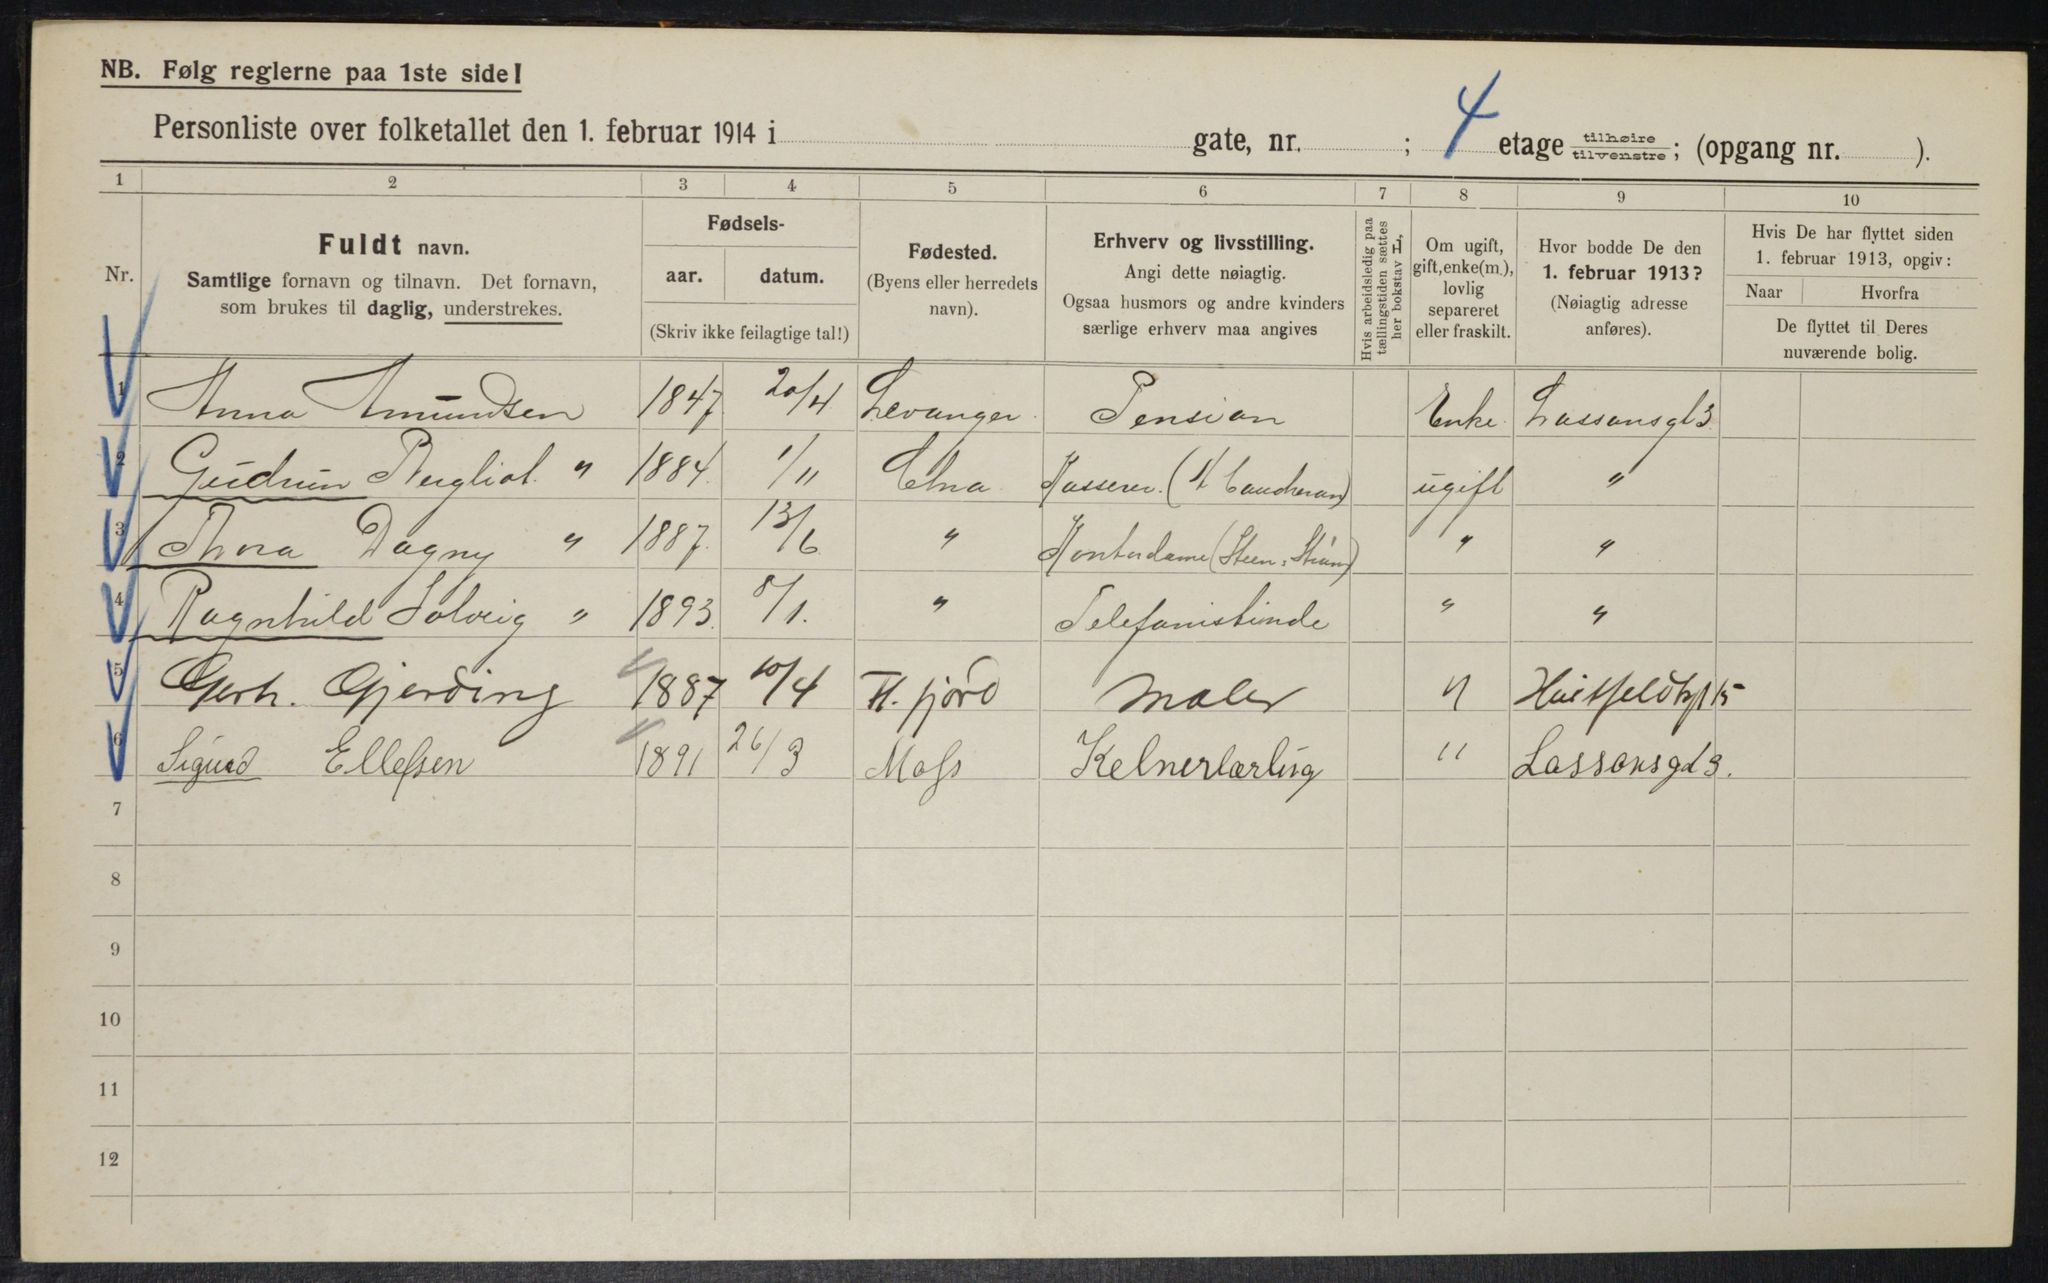 NB. Følg reglerne paa 1ste side!
Personliste over folketallet den 1. februar 1914 i gate, nr. ; 4 etage tilhøire tilvenstre; (opgang nr. ).
1 2 3 4 5 6 7 8 9 10
Nr.
Fuldt navn.
Samtlige fornavn og tilnavn. Det fornavn,
som brukes til daglig, understrekes.
Fødsels-
aar. datum.
(Skriv ikke feilagtige tal!)
Fødested.
(Byens eller herredets
navn).
Erhverv og livsstilling.
Angi dette nøiagtig.
Ogsaa husmors og andre kvinders
særlige erhverv maa angives
Hvis arbeidsledig paa
tællingstiden sættes
her bokstav L,
Om ugift,
gift, enke(m.),
lovlig
separeret
eller fraskilt.
Hvor bodde De den
1. februar 1913?
(Nøiagtig adresse
anføres).
Hvis De har flyttet siden
1. februar 1913, opgiv:
Naar Hvorfra
De flyttet til Deres
nuværende bolig.
1 Anna Amundsen 1847 20/4 Levanger Pension Enke Lassonsgt 3
2 Gudrun Bergliot " 1884 1/11 Chra Kasserer. ugift "
3 Thora Dagny " 1887. 13/6 " Kontordame (Steen & Strøm) " "
4 Ragnhild Solveig " 1893. 8/1. " Telefonistinde " "
5 Gerh. Gjerding 1887 10/4 H. fjord Maler " Huitfeldtsgt 15
6 Sigurd Ellefsen 1891 26/3 Moss Kelnerlærling " Lassonsgd 3.
7
8
9
10
11
12